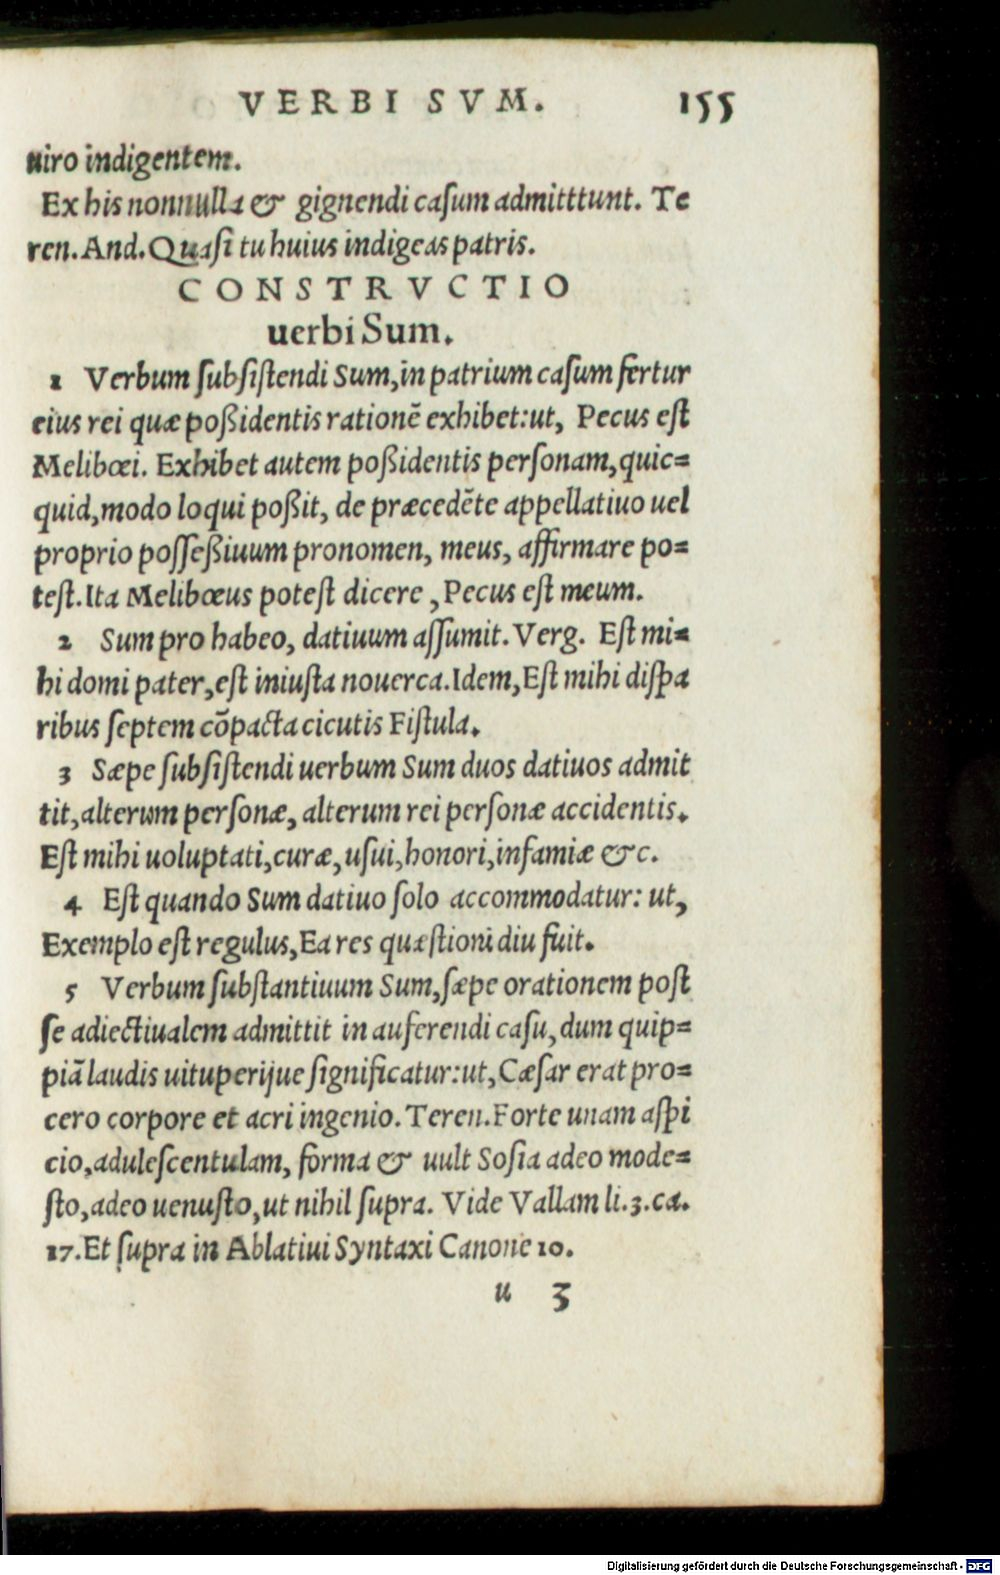 VERBI SVM. 155
uiro indigentem.
Ex his nonnulla & gignendi caſum admitttunt. Te
ren. And. Quaſi tu huius indigeas patris.
CONSTRVCTIO
uerbi Sum.
1 Verbum ſubſiſtendi Sum, in patrium caſum fertur
eius rei quæ poßidentis rationē exhibet: ut, Pecus eſt
Melibœi. Exhibet autem poßidentis perſonam, quic=
quid, modo loqui poßit, de præcedēte appellatiuo uel
proprio poſſeßiuum pronomen, meus, affirmare po=
teſt. Ita Melibœus poteſt dicere, Pecus eſt meum.
2 Sum pro habeo, datiuum aſſumit. Verg. Eſt mi=
hi domi pater, eſt iniuſta nouerca. Idem, Eſt mihi diſpa
ribus ſeptem cōpacta cicutis Fiſtula.
3 Sæpe ſubſiſtendi uerbum Sum duos datiuos admit
tit, alterum perſonæ, alterum rei perſonæ accidentis.
Eſt mihi uoluptati, curæ, uſui, honori, infamiæ &c.
4 Eſt quando Sum datiuo ſolo accommodatur: ut,
Exemplo eſt regulus, Ea res quæſtioni diu fuit.
5 Verbum ſubſtantiuum Sum, ſæpe orationem poſt
ſe adiectiualem admittit in auferendi caſu, dum quip=
piā laudis uituperijue ſignificatur: ut, Cæſar erat pro=
cero corpore et acri ingenio. Teren. Forte unam aſpi
cio, aduleſcentulam, forma & uult Soſia adeo mode=
ſto, adeo uenuſto, ut nihil ſupra. Vide Vallam li. 3. ca.
17. Et ſupra in Ablatiui Syntaxi Canone 10.
u 3
Digitalisierung gefördert durch die Deutsche Forschungsgemeinschaft - DFG